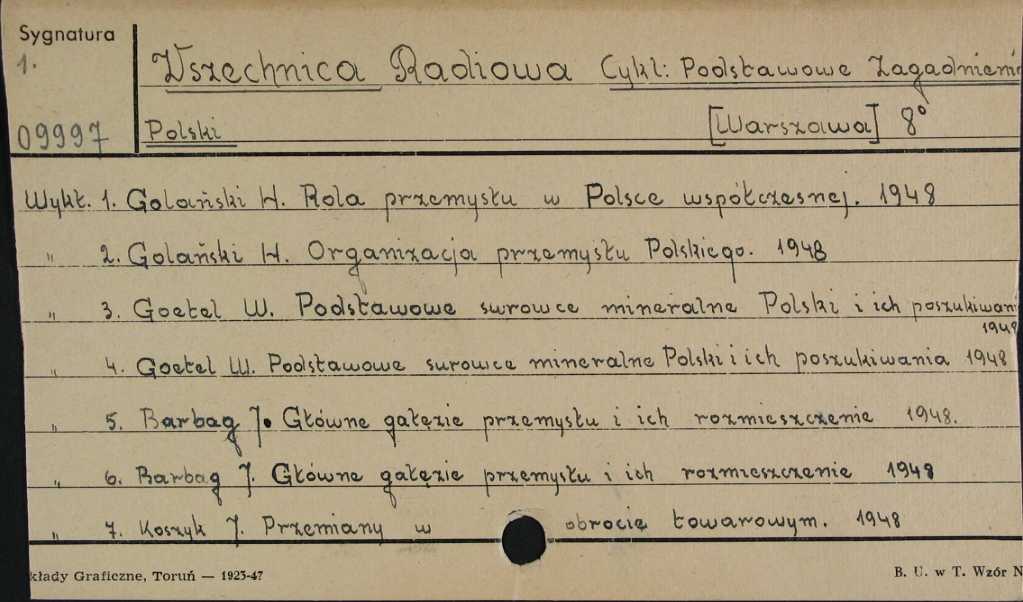 Sygnatura
1.
Wszechnica Radiowa Cykl: Podstawowe Zagadnienia
09997
Polski [Warszawa] 8°
Wykł. 1. Golański H. Rola przemysłu w Polsce współczesnej. 1948
" 2. Golański H. Organizacja przemysłu Polskiego. 1948
" 3. Goetel W. Podstawowe surowce mineralne Polski i ich poszukiwani
1948
" 4. Goetel W. Podstawowe surowce mineralne Polski i ich poszukiwania 1948
" 5. Barbag J. Główne gałęzie przemysłu i ich rozmieszczenie 1948.
" 6. Barbag J. Główne gałęzie przemysłu i ich rozmieszczenie 1948
" 7. Koszyk J. Przemiany w obrocie towarowym. 1948
kłady Graficzne, Toruń — 1923-47
B. U. w T. Wzór N